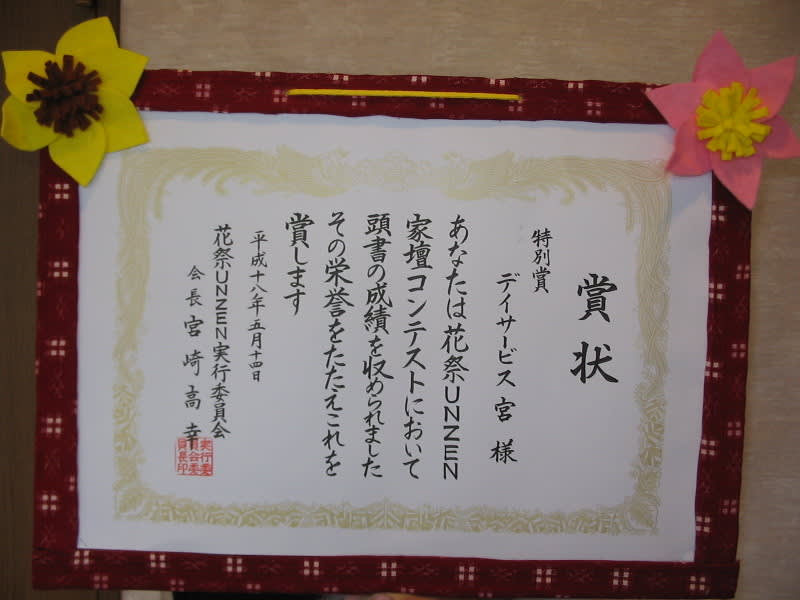 賞状
特別賞
デイサービス宮 様
あなたは花祭UNZEN
家壇コンテストにおいて
頭書の成績を収められました
その栄誉をたたえこれを
賞します
平成十八年五月十四日
花祭UNZEN実行委員会
会長 宮崎高幸
実行委
員会委
員長印